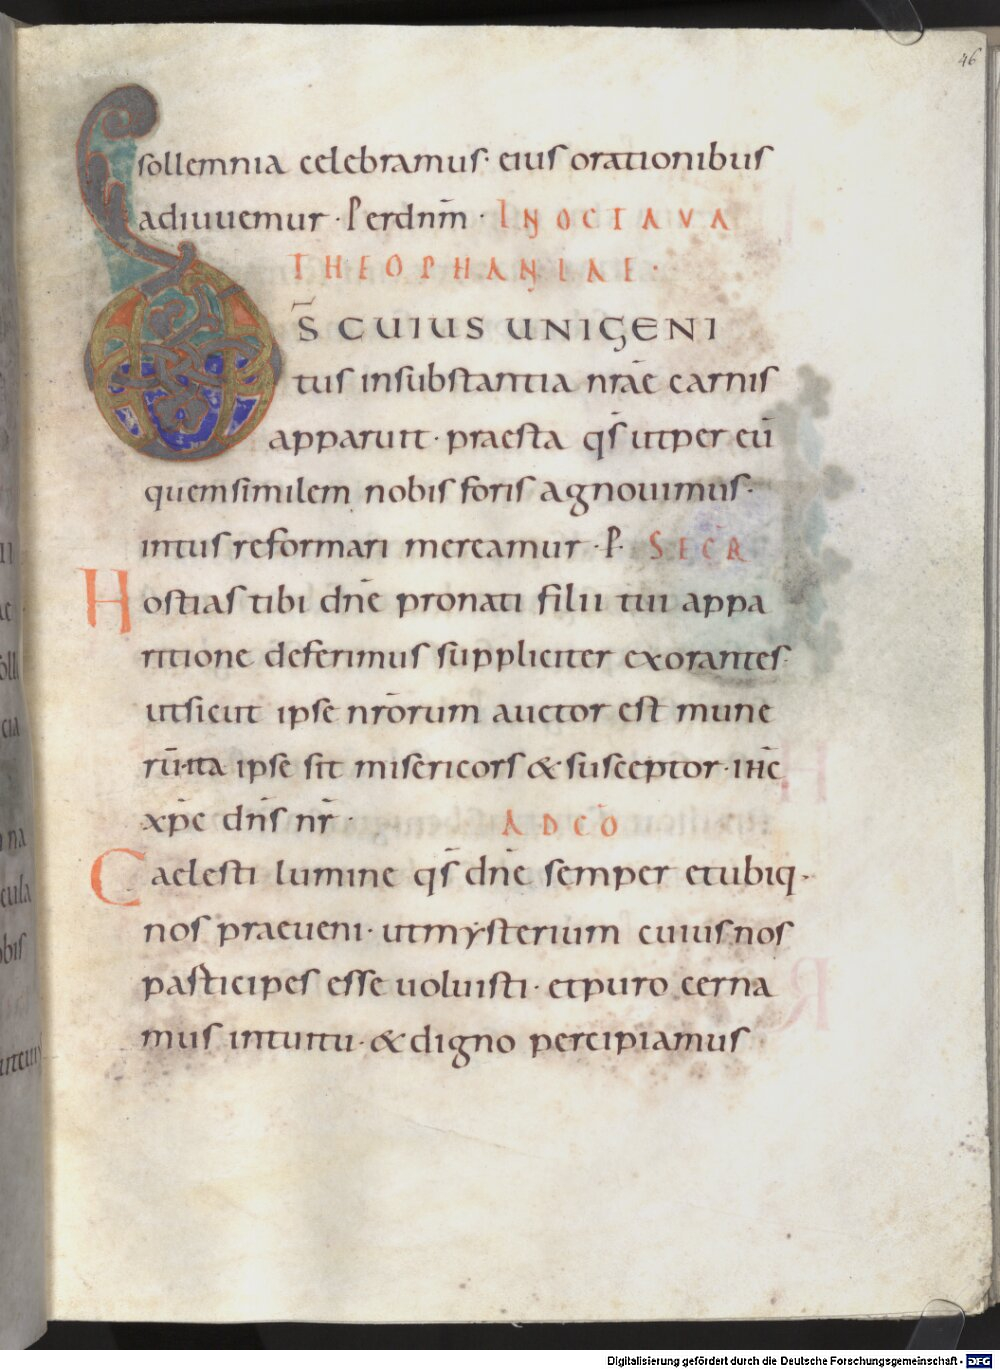 46
sollemnia celebramus· eius orationibus
adiuuemur · Per dn̄m · IN OCTAVA
THEOPHANIAE ·
DS̄ CUIUS UNIGENI
tus in substantia nrāe carnis
apparuit · praesta qs̄ ut per eū
quem similem nobis foris agnouimus·
intus reformari mereamur · P· SECR̄
Hostias tibi dn̄e pro nati filii tui appa
ritione deferimus suppliciter exorantes·
ut sicut ipse nr̄orum auctor est mune
rū· ita ipse sit misericors & susceptor · ih̄c
xp̄c dn̄s nr̄ · AD CŌ
Caelesti lumine qs̄ dn̄e semper et ubiq·
nos praeueni · ut mysterium cuius nos
pasticipes esse uoluisti · et puro cerna
mus intuitu · & digno percipiamus
Digitalisierung gefördert durch die Deutsche Forschungsgemeinschaft - DFG